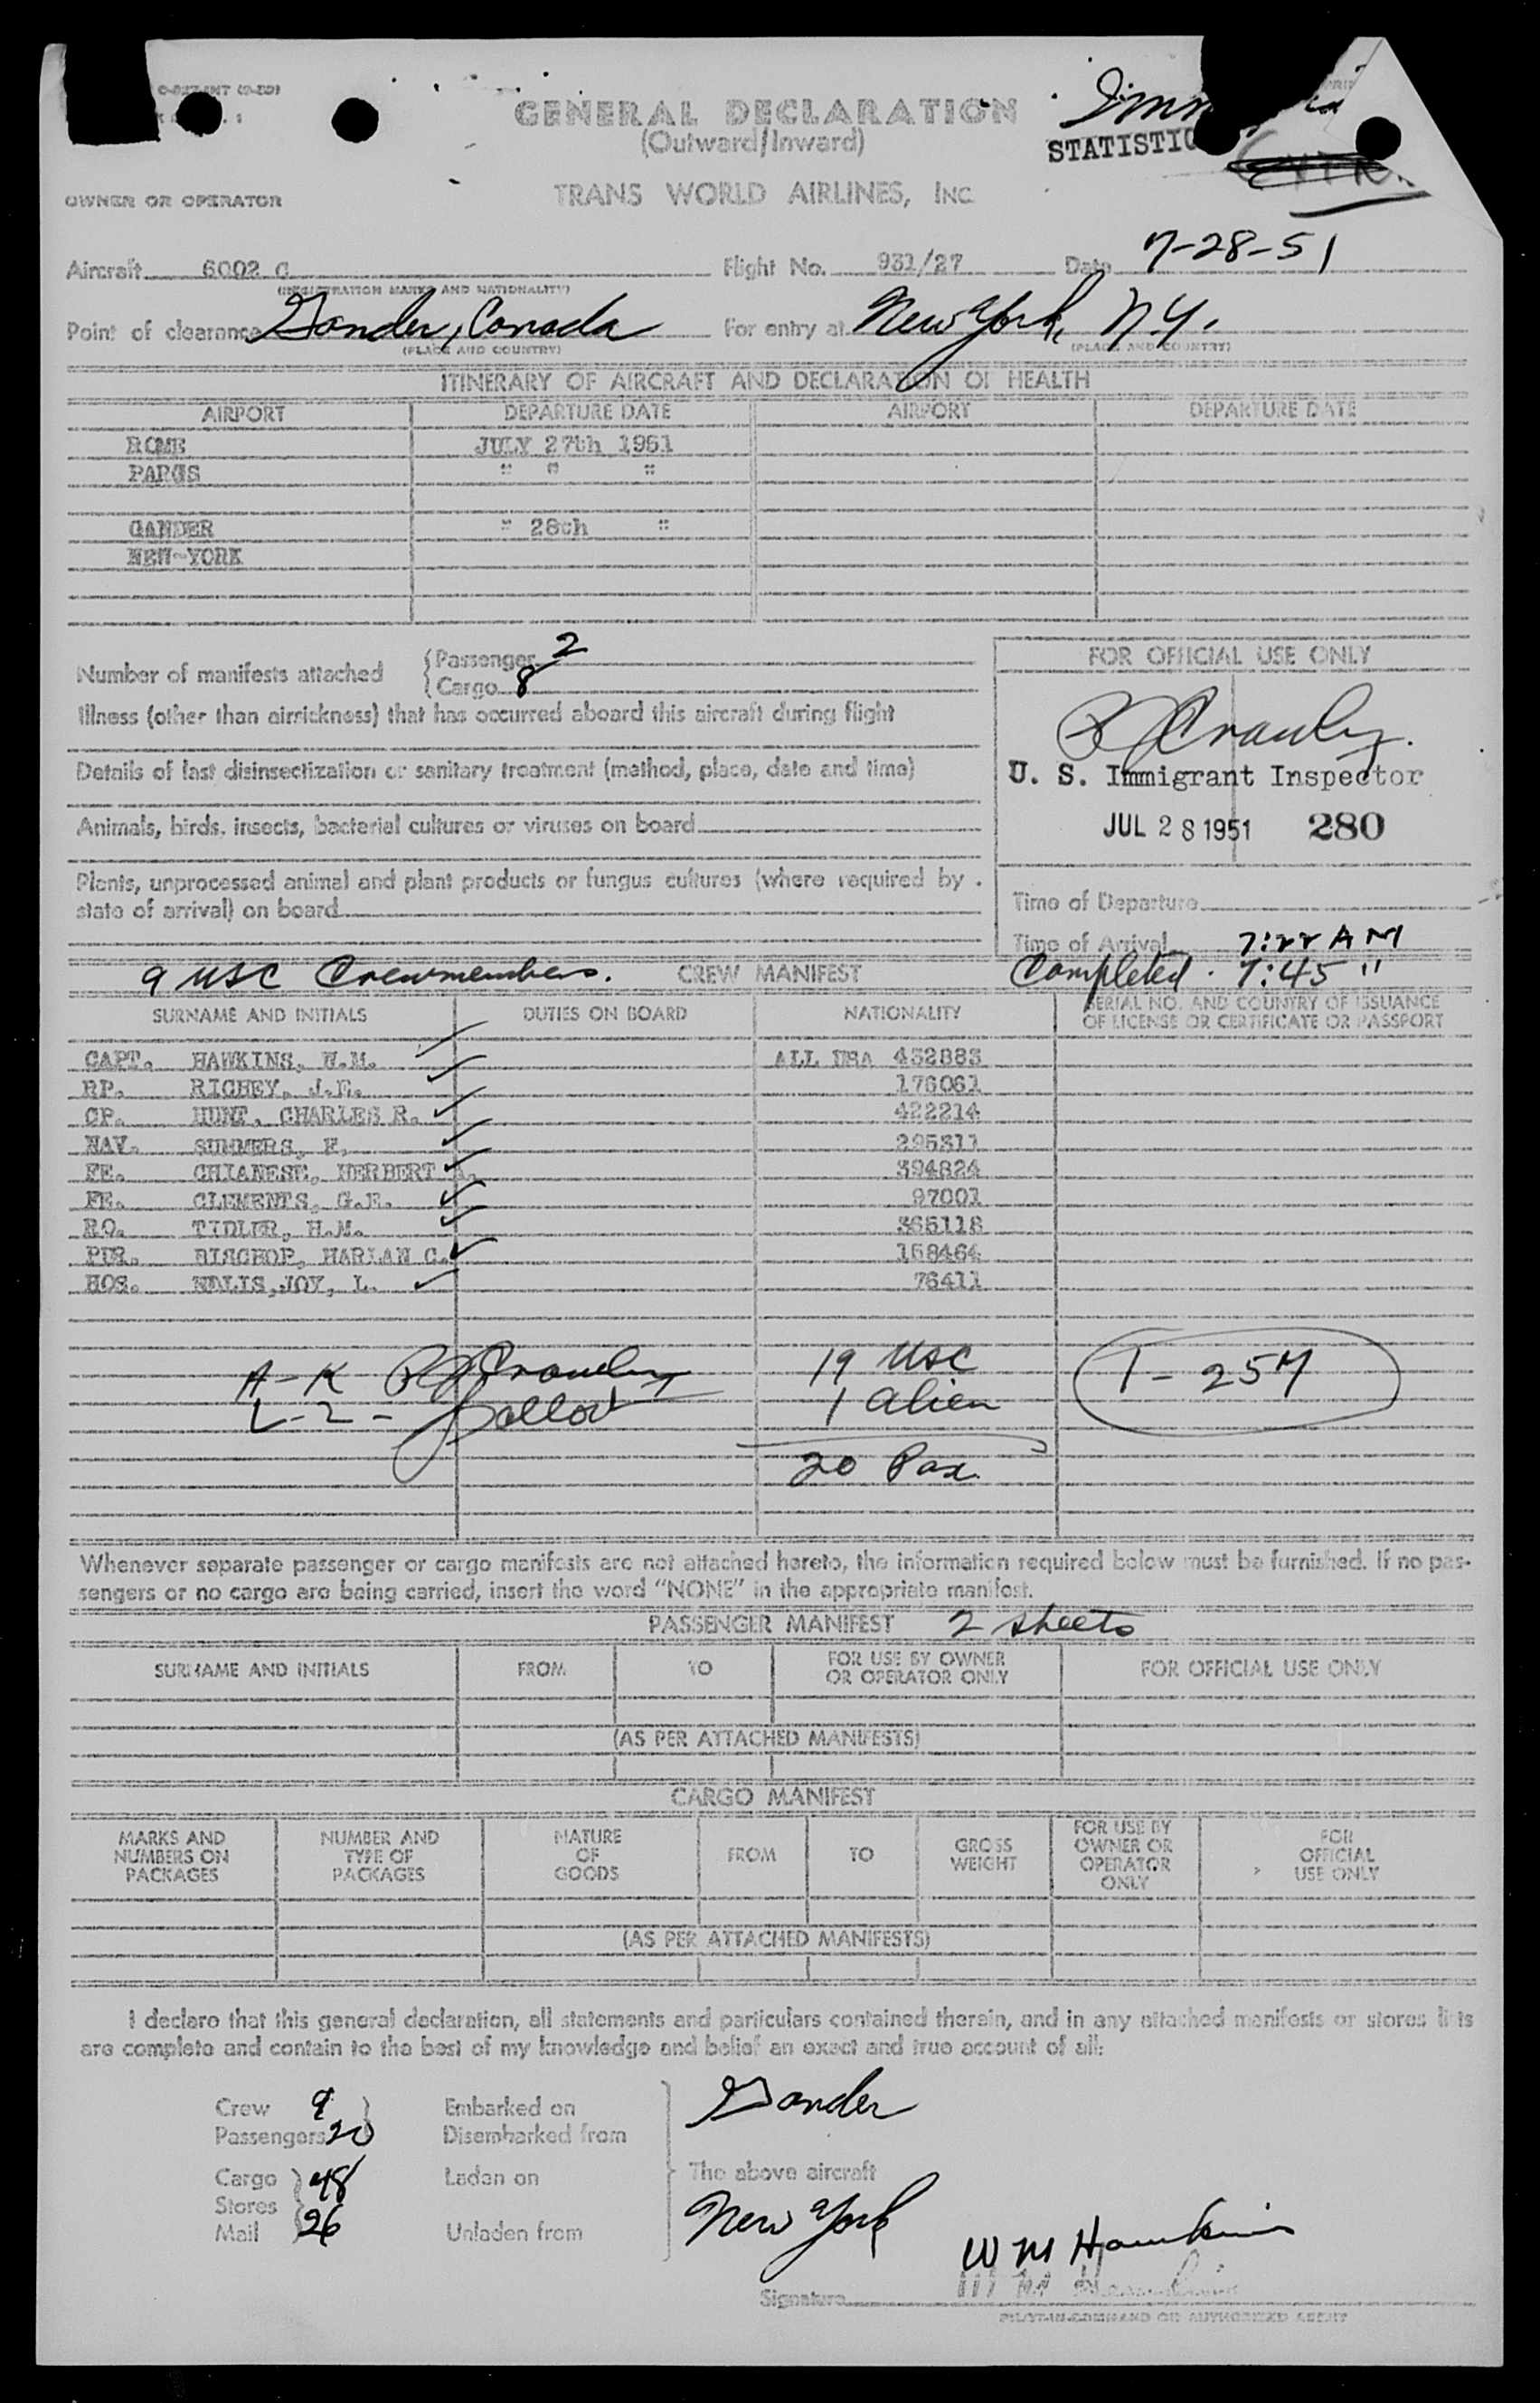 GENERAL DECLARATION
(Outward/Inward)
STATISTIC
OWNER OR OPERATOR
TRANS WORLD AIRLINES, INC.
Aircraft 6002 C Flight No. 931/27 Date 7-28-51
(REGISTRATION MARKS AND NATIONALITY)
Point of clearance Gander, Canada For entry at New York, N.Y.
(PLACE AND COUNTRY) (PLACE AND COUNTRY)
ITINERARY OF AIRCRAFT AND DECLARATION OF HEALTH
AIRPORT DEPARTURE DATE AIRPORT DEPARTURE DATE
ROME JULY 27th 1951
PARIS " " "
GANDER " 28th "
NEW-YORK
Number of manifests attached
Passenger 2
Cargo 8
Illness (other than airsickness) that has occurred aboard this aircraft during flight
Details of last disinsectization or sanitary treatment (method, place, date and time)
Animals, birds, insects, bacterial cultures or viruses on board
Plants, unprocessed animal and plant products or fungus cultures (where required by
state of arrival) on board
FOR OFFICIAL USE ONLY
U. S. Immigrant Inspector
JUL 28 1951 280
Time of Departure
Time of Arrival 7:22 AM
Completed 7:45 "
9 USC Crewmembers. CREW MANIFEST
SURNAME AND INITIALS DUTIES ON BOARD NATIONALITY SERIAL NO. AND COUNTRY OF ISSUANCE
OF LICENSE OR CERTIFICATE OR PASSPORT
CAPT. HAWKINS, W.M. ALL USA 432883
RP. RICHEY, J.E. 176061
CP. HUNT, CHARLES R. 422214
NAV. SUMMERS, F. 295311
FE. CHIANESE, HERBERT A. 394824
FE. CLEMENTS, G.E. 97001
RO. TIDLER, H.M. 365118
PUR. BISCHOP, HARLAN C. 158464
HOS. JOY, L. 76411
A-K
L-Z -
19 USC
1 alien
20 Pax.
Whenever separate passenger or cargo manifests are not attached hereto, the information required below must be furnished. If no pas-
sengers or no cargo are being carried, insert the word "NONE" in the appropriate manifest.
PASSENGER MANIFEST 2 sheets
SURNAME AND INITIALS FROM TO FOR USE BY OWNER
OR OPERATOR ONLY FOR OFFICIAL USE ONLY
(AS PER ATTACHED MANIFESTS)
CARGO MANIFEST
MARKS AND
NUMBERS ON
PACKAGES
NUMBER AND
TYPE OF
PACKAGES
NATURE
OF
GOODS
FROM
TO
GROSS
WEIGHT
FOR USE BY
OWNER OR
OPERATOR
ONLY
FOR
OFFICIAL
USE ONLY
(AS PER ATTACHED MANIFESTS)
I declare that this general declaration, all statements and particulars contained therein, and in any attached manifests or stores lists
are complete and contain to the best of my knowledge and belief an exact and true account of all:
Crew 9 Embarked on Gander
Passengers 20 Disembarked from
Cargo 48 Laden on The above aircraft
Stores
Mail 26 Unladen from New York
W M Hawkins
Signature
PILOT-IN-COMMAND OR AUTHORIZED AGENT